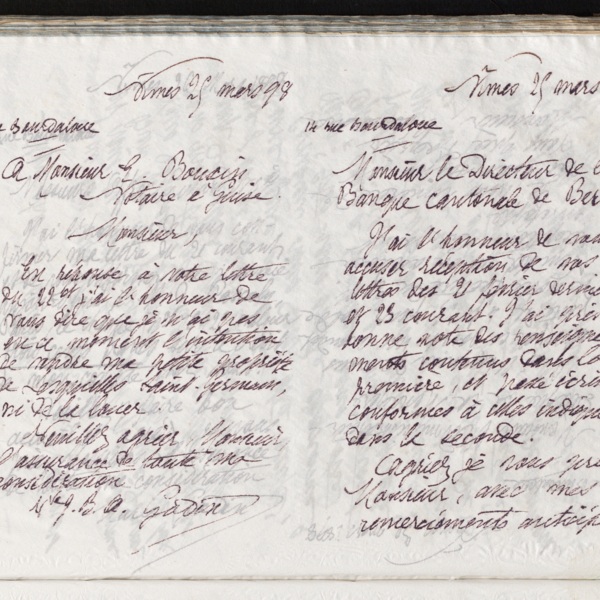 Nîmes 25 mars 98
rue Bourdaloue
A Monsieur E. Boucin
Notaire à Guise.
Monsieur
En réponse à votre lettre
du 22 ct j'ai l'honneur de
vous dire que je n'ai pas
en ce moment l'intention
de vendre ma petite propriété
de Lesquielles Saint-Germain,
ni de la louer.
Veuillez agréer Monsieur
l'assurance de toute ma
considération
Vve J. B. A. Godin
Nîmes 25 mars
14 rue Bourdaloue
Monsieur le Directeur de la
Banque cantonale de Ber
J'ai l'honneur de vous
accuser réception de vos
lettres des 21 février dernier
et 23 courant. J'ai pris
bonne note des renseigne
ments contenus dans la
première, et vous écris
conformes à celles indiqu
dans la seconde.
agréez je vous pri
Monsieur, avec mes
remerciements anticip